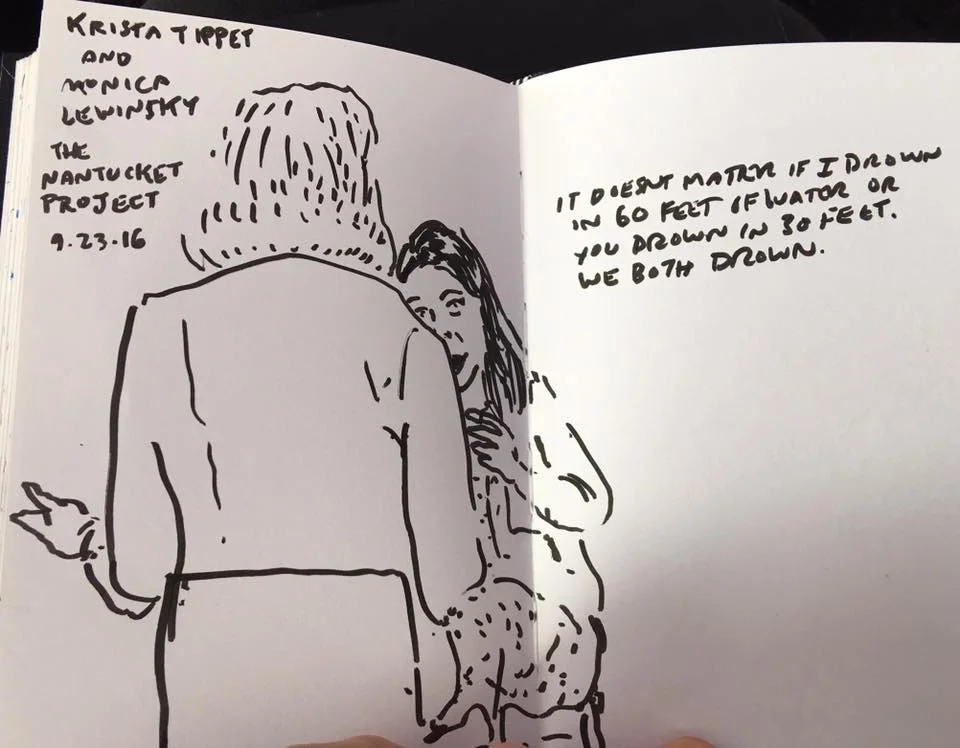 KRISTA TIPPET
AND
MONICA
LEWINSKY
THE
NANTUCKET
PROJECT
9.23.16
IT DOESNT MATTER IF I DROWN
IN 60 FEET OF WATER OR
YOU DROWN IN 30 FEET.
WE BOTH DROWN.